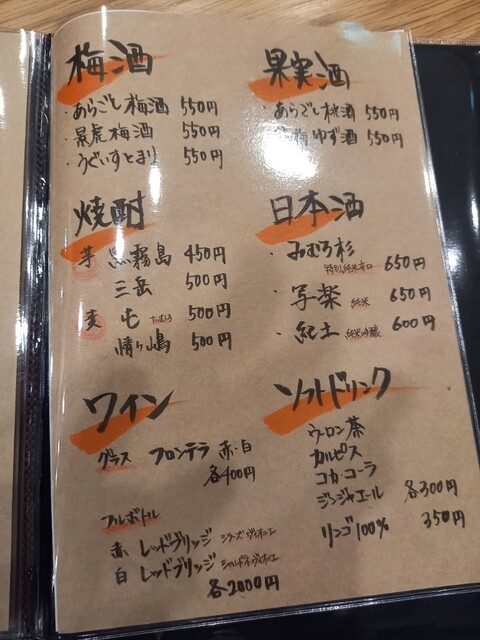 梅酒
・あらごし梅酒 550円
・景虎梅酒 550円
・うぐいすとまり 550円
果実酒
・あらごし桃酒 550円
梅ゆず酒 550円
焼酎
芋 黒霧島 450円
三岳 500円
麦 屯 たむろ 500円
情ヶ嶋 500円
日本酒
・みむろ杉
特別純米辛口 650円
・写楽 純米 650円
・紀土 純米吟醸 600円
ワイン
グラス フロンテラ 赤・白
各400円
フルボトル
赤 レッドブリッジ シラーズヴィオニエ
白 レッドブリッジ シャルドネヴィオニエ
各2000円
ソフトドリンク
ウーロン茶
カルピス
コカ・コーラ
ジンジャエール 各300円
リンゴ100% 350円